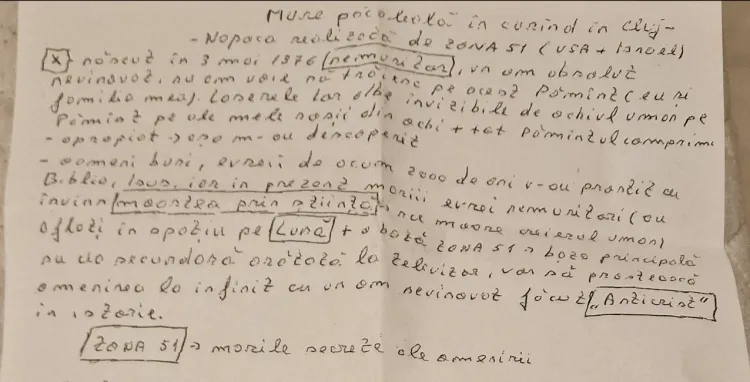 Mare păcăleală în curînd în Cluj-
-Napoca realizată de ZONA 51 (USA + Israel)
[X] născut în 3 mai 1976 (nemuritor), un om absolut
nevinovat, nu am voie să trăiesc pe acest Pămînt (eu și
familia mea). Laserele lor albe invizibile de ochiul uman pe
Pămînt pe ale mele roșii din ochi + tot pămîntul comprim
-apropiat → așa m-au descoperit
-oameni buni, evreii de acum 2000 de ani v-au prostit cu
Biblia, Isus, iar în prezent marii evrei nemuritori (au
învins moartea prin știință) → nu moare creierul uman)
aflați în spațiu pe Lună + o bază ZONA 51 → baza principală
nu cea secundară arătată la televizor, vor să prostească
omenirea la infinit cu un om nevinovat făcut „Anticrist"
în istorie.
ZONA 51 → marile secrete ale omenirii